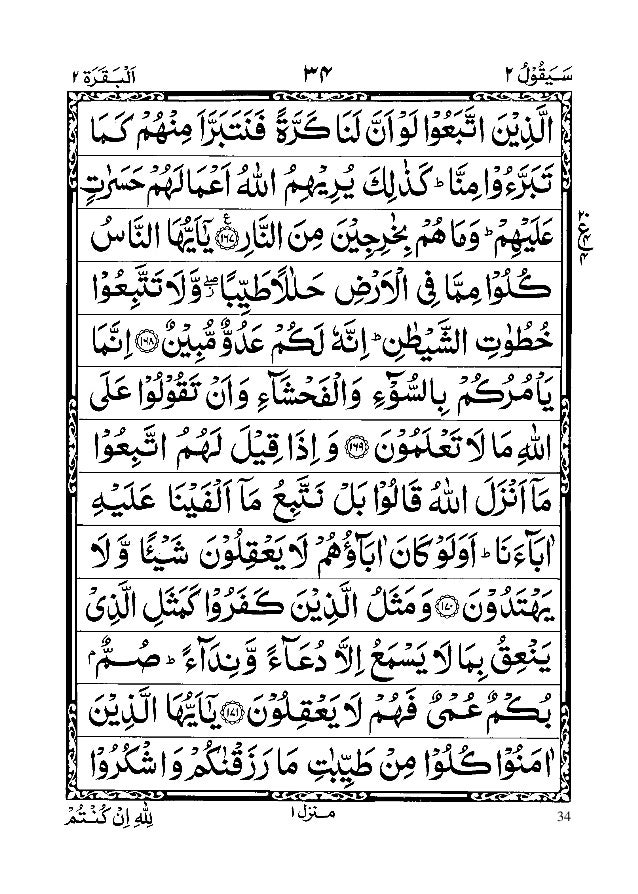 سَيَقُوْلُ ٢ ٣٤ اَلْبَقَرَة ٢
الَّذِيْنَ اتَّبَعُوْا لَوْ اَنَّ لَنَا كَرَّةً فَنَتَبَرَّاَ مِنْهُمْ كَمَا
تَبَرَّءُوْا مِنَّا ؕ كَذٰلِكَ يُرِيْهِمُ اللّٰهُ اَعْمَالَهُمْ حَسَرٰتٍ
عَلَيْهِمْ ؕ وَمَا هُمْ بِخٰرِجِيْنَ مِنَ النَّارِ ﴿١٦٧﴾ ع يٰۤاَيُّهَا النَّاسُ
كُلُوْا مِمَّا فِى الْاَرْضِ حَلٰلًا طَيِّبًا ۖ وَّلَا تَتَّبِعُوْا
خُطُوٰتِ الشَّيْطٰنِ ؕ اِنَّهٗ لَكُمْ عَدُوٌّ مُّبِيْنٌ ﴿١٦٨﴾ اِنَّمَا
يَاْمُرُكُمْ بِالسُّوْٓءِ وَالْفَحْشَآءِ وَاَنْ تَقُوْلُوْا عَلَى
اللّٰهِ مَا لَا تَعْلَمُوْنَ ﴿١٦٩﴾ وَاِذَا قِيْلَ لَهُمُ اتَّبِعُوْا
مَاۤ اَنْزَلَ اللّٰهُ قَالُوْا بَلْ نَتَّبِعُ مَاۤ اَلْفَيْنَا عَلَيْهِ
اٰبَآءَنَا ؕ اَوَلَوْ كَانَ اٰبَآؤُهُمْ لَا يَعْقِلُوْنَ شَيْـًٔا وَّلَا
يَهْتَدُوْنَ ﴿١٧٠﴾ وَمَثَلُ الَّذِيْنَ كَفَرُوْا كَمَثَلِ الَّذِىْ
يَنْعِقُ بِمَا لَا يَسْمَعُ اِلَّا دُعَآءً وَّنِدَآءً ؕ صُمٌّۢ
بُكْمٌ عُمْىٌ فَهُمْ لَا يَعْقِلُوْنَ ﴿١٧١﴾ يٰۤاَيُّهَا الَّذِيْنَ
اٰمَنُوْا كُلُوْا مِنْ طَيِّبٰتِ مَا رَزَقْنٰكُمْ وَاشْكُرُوْا
34 منزل ١ لِلّٰهِ اِنْ كُنْتُمْ